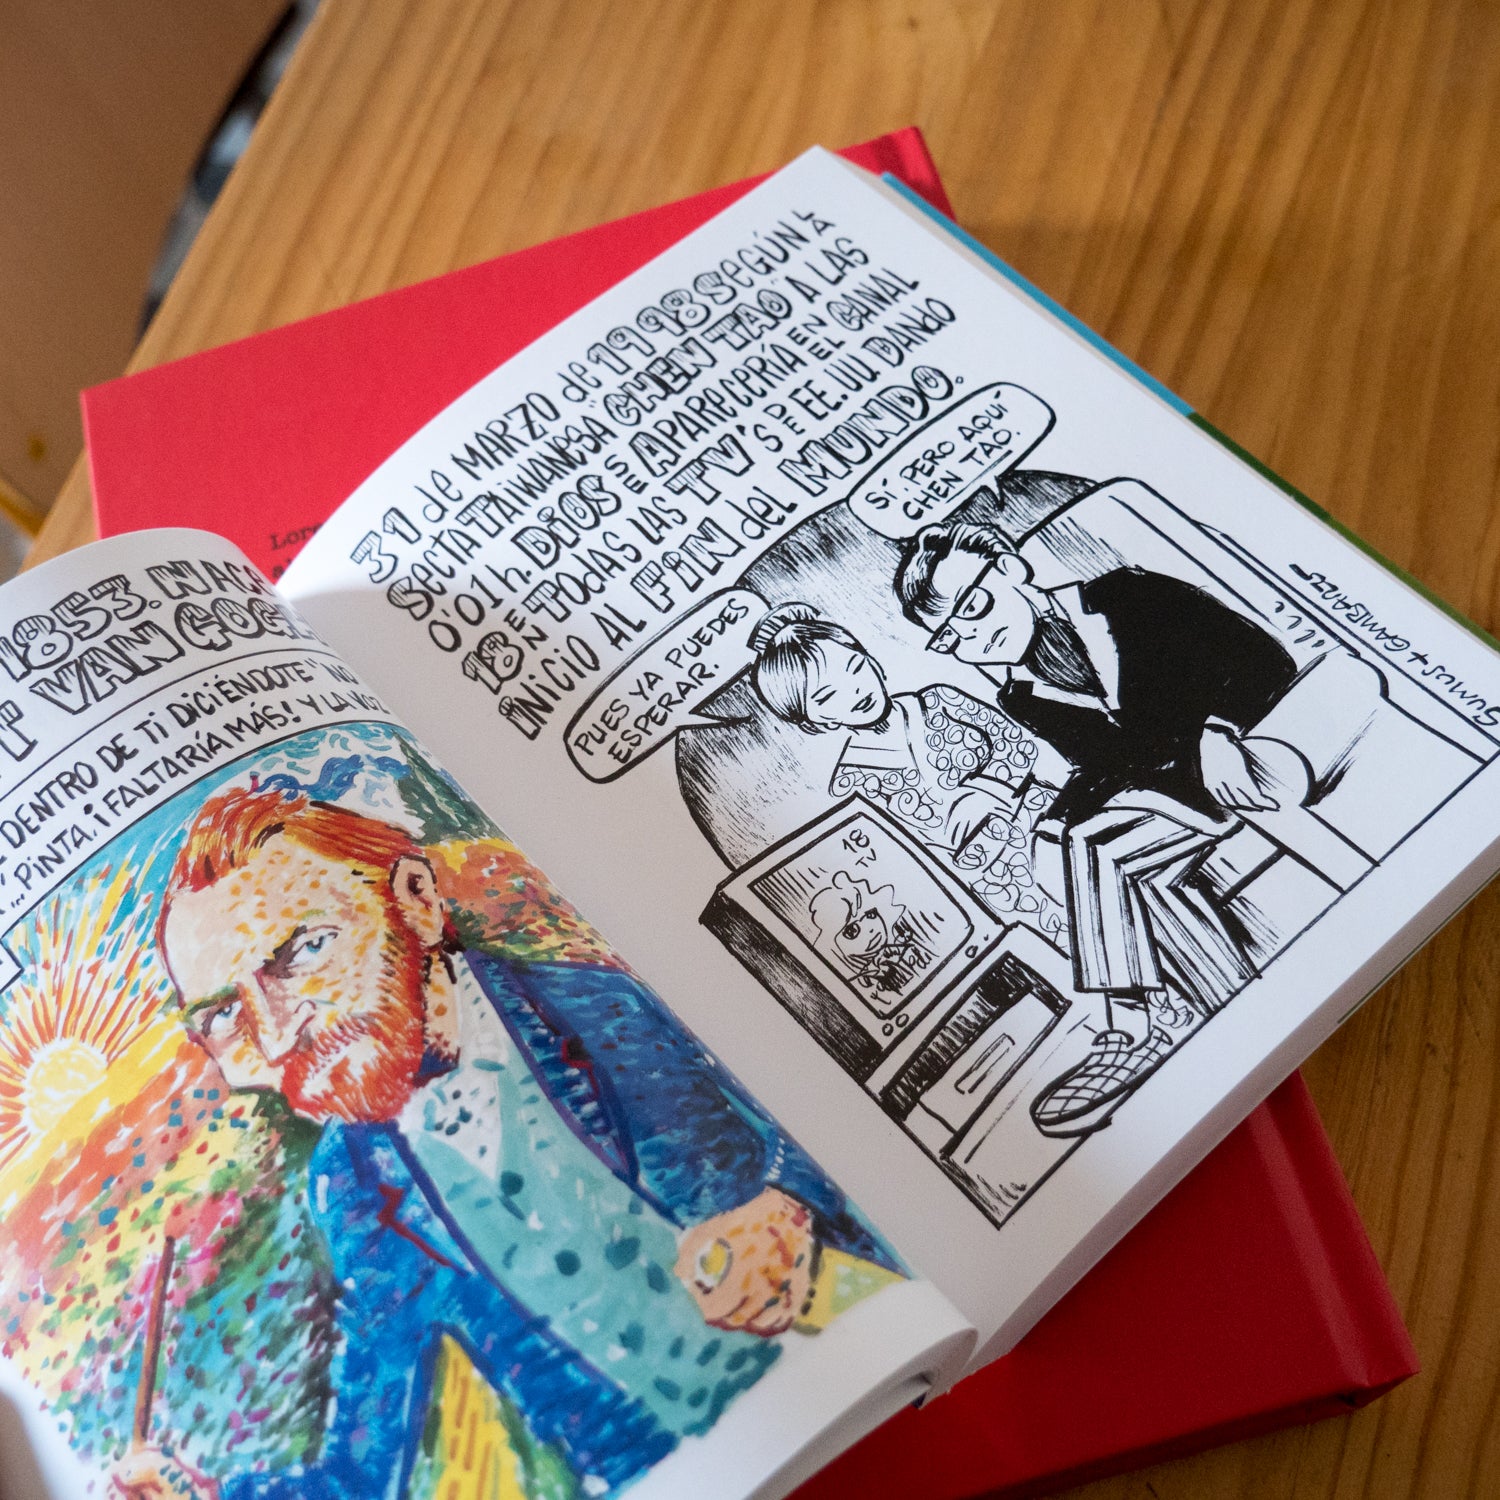 1853. NACE
VAN GOGH
DENTRO DE TI DICIÉNDOTE "NO
PINTA, ¡FALTARÍA MÁS! Y LA VOZ
31 de MARZO de 1998 SEGÚN LA
SECTA TAIWANESA "CHEN TAO" A LAS
0'01 h. DIOS SE APARECERÍA EN EL CANAL
18 EN TODAS LAS TV'S DE EE.UU. DANDO
INICIO AL FIN del MUNDO.
SÍ, PERO AQUÍ
CHEN TAO.
PUES YA PUEDES
ESPERAR.
18
TV
SUMUS + GAMBANTS
Lore